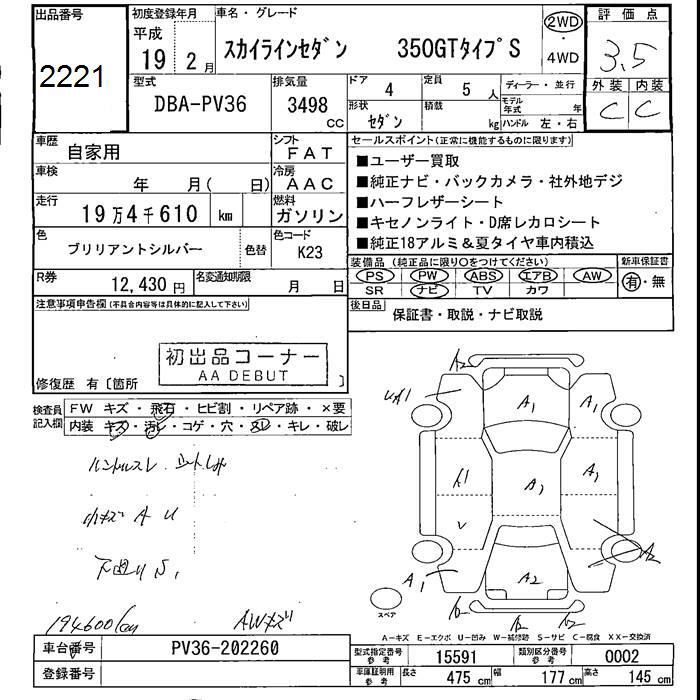 出品番号
2221
初度登録年月
平成
19年 2月
車名・グレード
スカイラインセダン 350GTタイプS
2WD
・
4WD
評価点
3.5
外装 内装
C C
型式
DBA-PV36
排気量
3498
CC
ドア
4
定員
5 人
ディーラー・並行
形状
セダン
積載
kg
モデル年式
年
ハンドル 左・右
車歴
自家用
シフト
FAT
車検
年 月( 日)
冷房
AAC
走行
19万4千610 km
燃料
ガソリン
色
ブリリアントシルバー
色替
色コード
K23
R券
12,430 円
名変通知期限
月 日
セールスポイント(正常に機能するものに限ります)
■ユーザー買取
■純正ナビ・バックカメラ・社外地デジ
■ハーフレザーシート
■キセノンライト・D席レカロシート
■純正18アルミ&夏タイヤ車内積込
装備品(純正品に限り○をつけてください)
PS PW ABS エアB AW
SR ナビ TV カワ
新車保証書
有・無
後日品
保証書・取説・ナビ取説
注意事項申告欄(不具合内容等は具体的に記入して下さい)
初出品コーナー
AA DEBUT
修復歴 有〔箇所 〕
検査員
記入欄
FW キズ・飛石・ヒビ割・リペア跡・×要
内装 キズ・汚レ・コゲ・穴・スレ・キレ・破レ
ハンドルスレ
小キズ A U
下回り S1
194600km
AWキズ
A2
A1
A1
A1
A1
A2
A1
A2
スペア
A-キズ E-エクボ U-凹み W-補修跡 S-サビ C-腐食 XX-交換済
車台番号
PV36-202260
登録番号
型式指定番号
参考
15591
類別区分番号
参考
0002
車庫証明用
参考
長さ
475 cm
幅
177 cm
高さ
145 cm